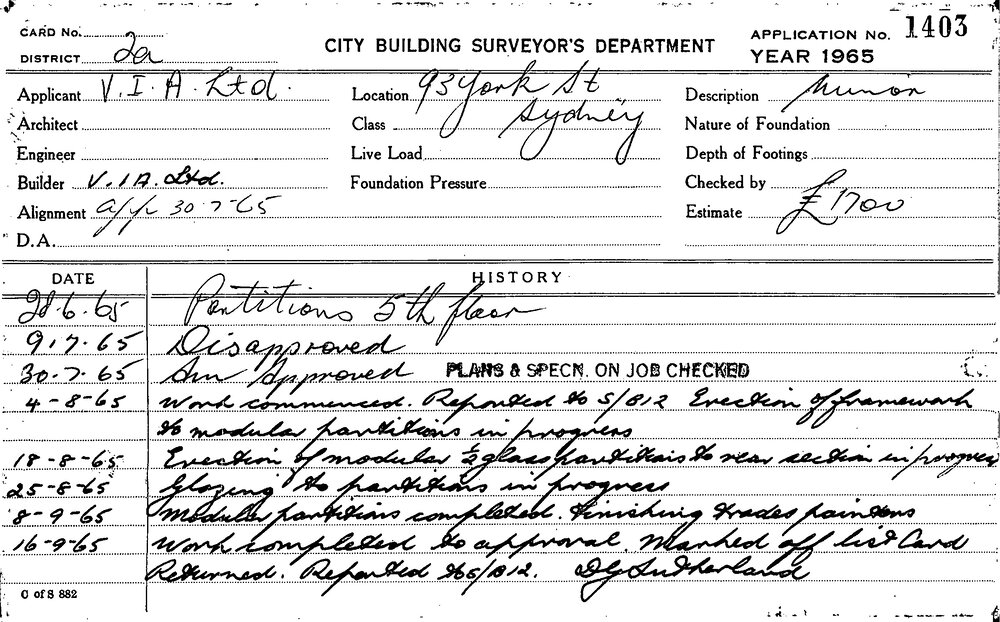 CARD No.
DISTRICT 2a
CITY BUILDING SURVEYOR'S DEPARTMENT
APPLICATION No. 1403
YEAR 1965
Applicant V.I.A. Ltd.
Location 93 York St
Sydney
Description Minor
Architect
Class
Nature of Foundation
Engineer
Live Load
Depth of Footings
Builder V.I.A. Ltd.
Foundation Pressure
Checked by
Alignment app 30-7-65
Estimate £1700
D.A.
DATE HISTORY
28.6.65 Partitions 5th floor
9.7.65 Disapproved
30.7.65 Am Approved PLANS & SPECN. ON JOB CHECKED
4-8-65 Work commenced. Reported to S/B12 Erection of framework
to modular partitions in progress
18-8-65 Erection of modular ½ glass partitions to rear section in progress
25-8-65 Glazing to partitions in progress
8-9-65 Modular partitions completed. Finishing trades painters
16-9-65 Work completed to approval. Marked off list Card
Returned. Reported to S/B12. DG Sutherland
C of S 882